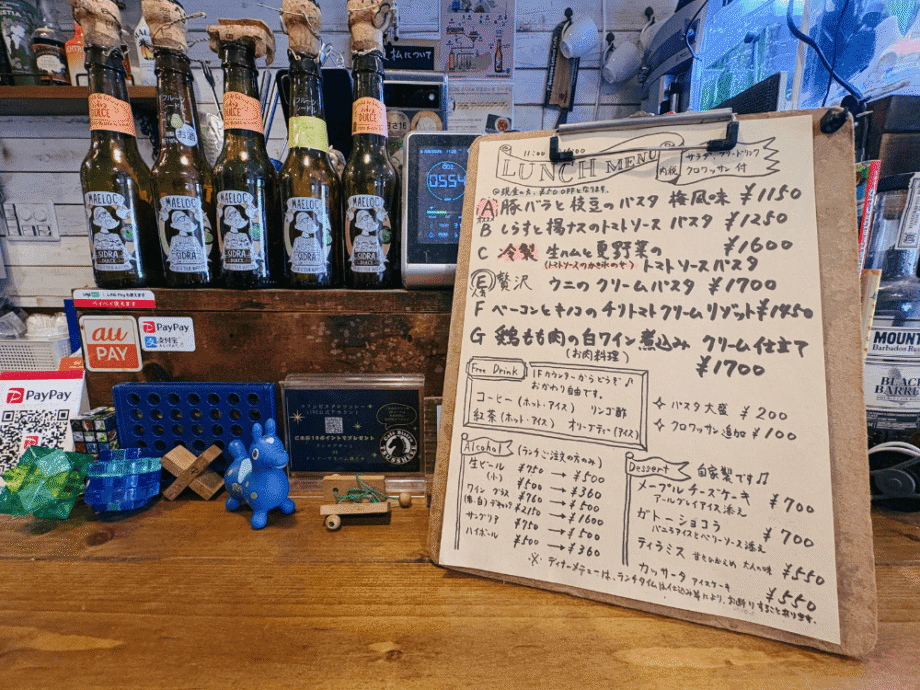 DULCE
MAELOC
SIDRA
DULCE
MAELOC
SIDRA
MAELOC
SIDRA
DULCE
MAELOC
SIDRA
DULCE
MAELOC
SIDRA
0554
au
PAY
PayPay
支付宝
PayPay
LUNCH MENU
内税
サラダ、フリードリンク
クロワッサン 付
◎現金の方、¥50 OFFとなります。
A 豚バラと枝豆のパスタ 梅風味 ¥1150
B しらすと揚ナスのトマトソース パスタ ¥1250
C 冷製 生ハムと夏野菜の ¥1600
(トマトソースのかき氷のせ) トマトソースパスタ
E 贅沢 ウニのクリームパスタ ¥1700
F ベーコンとキノコのチリトマトクリームリゾット ¥1450
G 鶏もも肉の白ワイン煮込み クリーム仕立て
(お肉料理) ¥1700
Free Drink 1Fカウンターからどうぞ♪
おかわり自由です。
コーヒー (ホット・アイス) リンゴ酢
紅茶 (ホット・アイス) オリーブティー (アイス)
✧ パスタ大盛 ¥200
✧ クロワッサン追加 ¥100
Alcohol (ランチご注文の方のみ)
生ビール ¥750 → ¥500
(小) ¥500 → ¥360
ワイン グラス ¥760 → ¥500
(赤、白) デキャンタ ¥2150 → ¥1600
サングリア ¥750 → ¥500
ハイボール ¥500 → ¥360
Dessert 自家製です♫
メープル チーズケーキ
アールグレイアイス添え ¥700
ガトーショコラ
バニラアイスとベリーソース添え ¥700
ティラミス 甘さひかえめ 大人の味 ¥550
カッサータ アイスケーキ ¥550
※ ディナーメニューは、ランチタイムは仕込み等により、お断りすることあります。
MOUNT
Barbados Ru
BLACK
BARREL